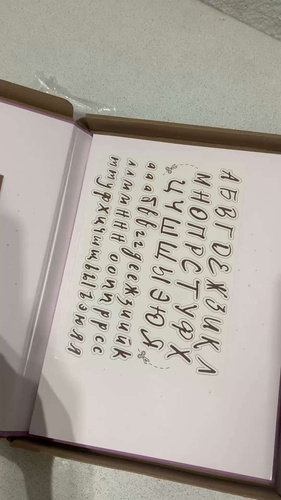 А Б В Г Д Е Ж З И К Л
М Н О П Р С Т У Ф Х
Ц Ч Ш Щ Ы Э Ю Я
а а а б в в г д е е ж з и и й к
л л м м н н н о о п п р р с с
т т у ф х ц ч ш щ ы ь ъ э ю я я